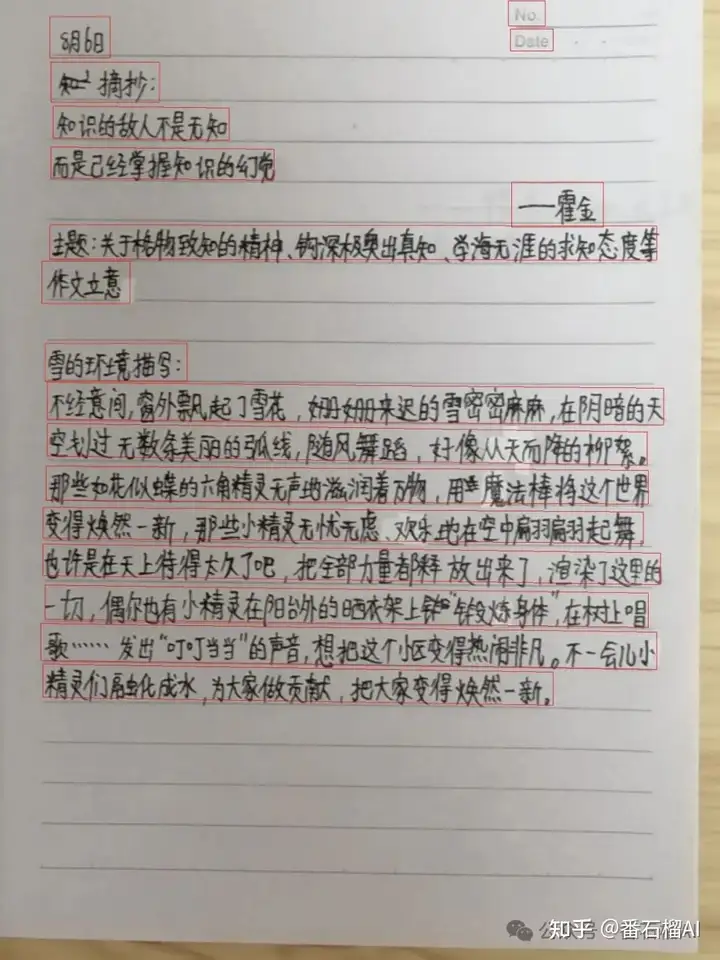 No.
8月6日
Date
摘抄:
知识的敌人不是无知
而是已经掌握知识的幻觉
——霍金
主题:关于格物致知的精神、钩深极奥出真知、学海无涯的求知态度等
作文立意
雪的环境描写:
不经意间,窗外飘起了雪花,姗姗来迟的雪密密麻麻,在阴暗的天
空划过无数条美丽的弧线,随风舞蹈,好像从天而降的柳絮。
那些如花似蝶的六角精灵无声地滋润着万物,用魔法棒将这个世界
变得焕然一新,那些小精灵无忧无虑、欢乐地在空中扇羽扇羽起舞,
也许是在天上待得太久了吧,把全部力量都释放出来了,渲染了这里的
一切,偶尔也有小精灵在阳台外的晒衣架上“锻炼身体”,在树上唱
歌……发出“叮叮当当”的声音,想把这个小区变得热闹非凡。不一会儿小
精灵们融化成水,为大家做贡献,把大家变得焕然一新。
知乎 @番石榴AI